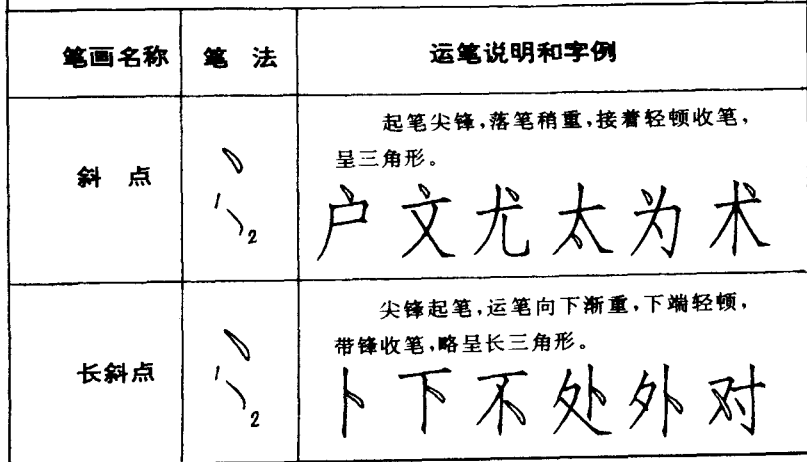 笔画名称 笔 法 运笔说明和字例
斜 点
起笔尖锋，落笔稍重，接着轻顿收笔，
呈三角形。
1
2
户 文 尤 太 为 术
长斜点
尖锋起笔，运笔向下渐重，下端轻顿，
带锋收笔，略呈长三角形。
1
2
卜 下 不 处 外 对